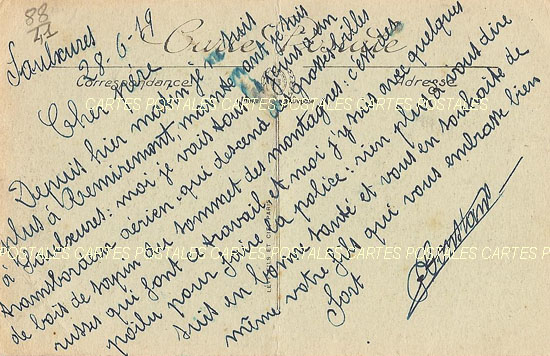 88
41
Saulxures
28-6-19
Carte Postale
Correspondance
Adresse
Cher père
Depuis hier matin je ne suis
plus à Remiremont, maintenant je suis
à Saulxures: moi je vais tous les jours à un
transbordeur aérien qui descend de grosses billes
de bois de sapin du sommet des montagnes: c'est des
russes qui font ce travail et moi j'y suis avec quelques
poilu pour faire la police: rien plus à vous dire
suis en bonne santé et vous en souhaite de
même votre fils qui vous embrasse bien
fort
CARTES POSTALES CARTES POSTALES CARTES POSTALES CARTES POSTALES
POSTALES CARTES POSTALES CARTES POSTALES CARTES POSTALES CARTES